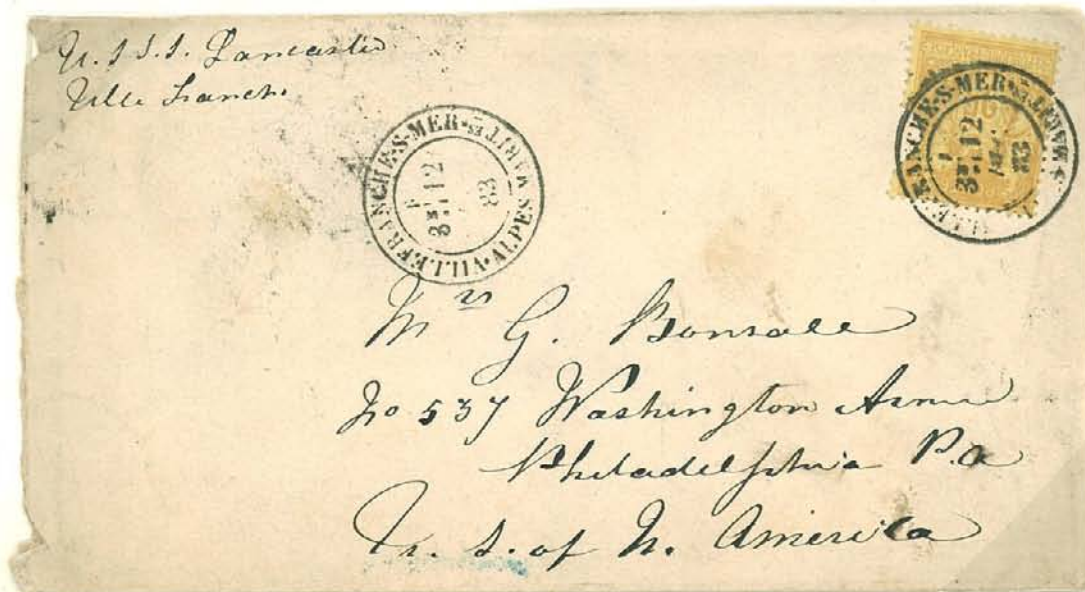 U.S.S.S. Lancaster
Ville Franch.
VILLEFRANCHE-S-MER-ALPES MARITES
3E 12 83
VILLEFRANCHE-S-MER MARITES
3E 12 83
Mrs G. Bonsall
No 537 Washington Avenue
Philadelphia P.a
U. S. of N. America